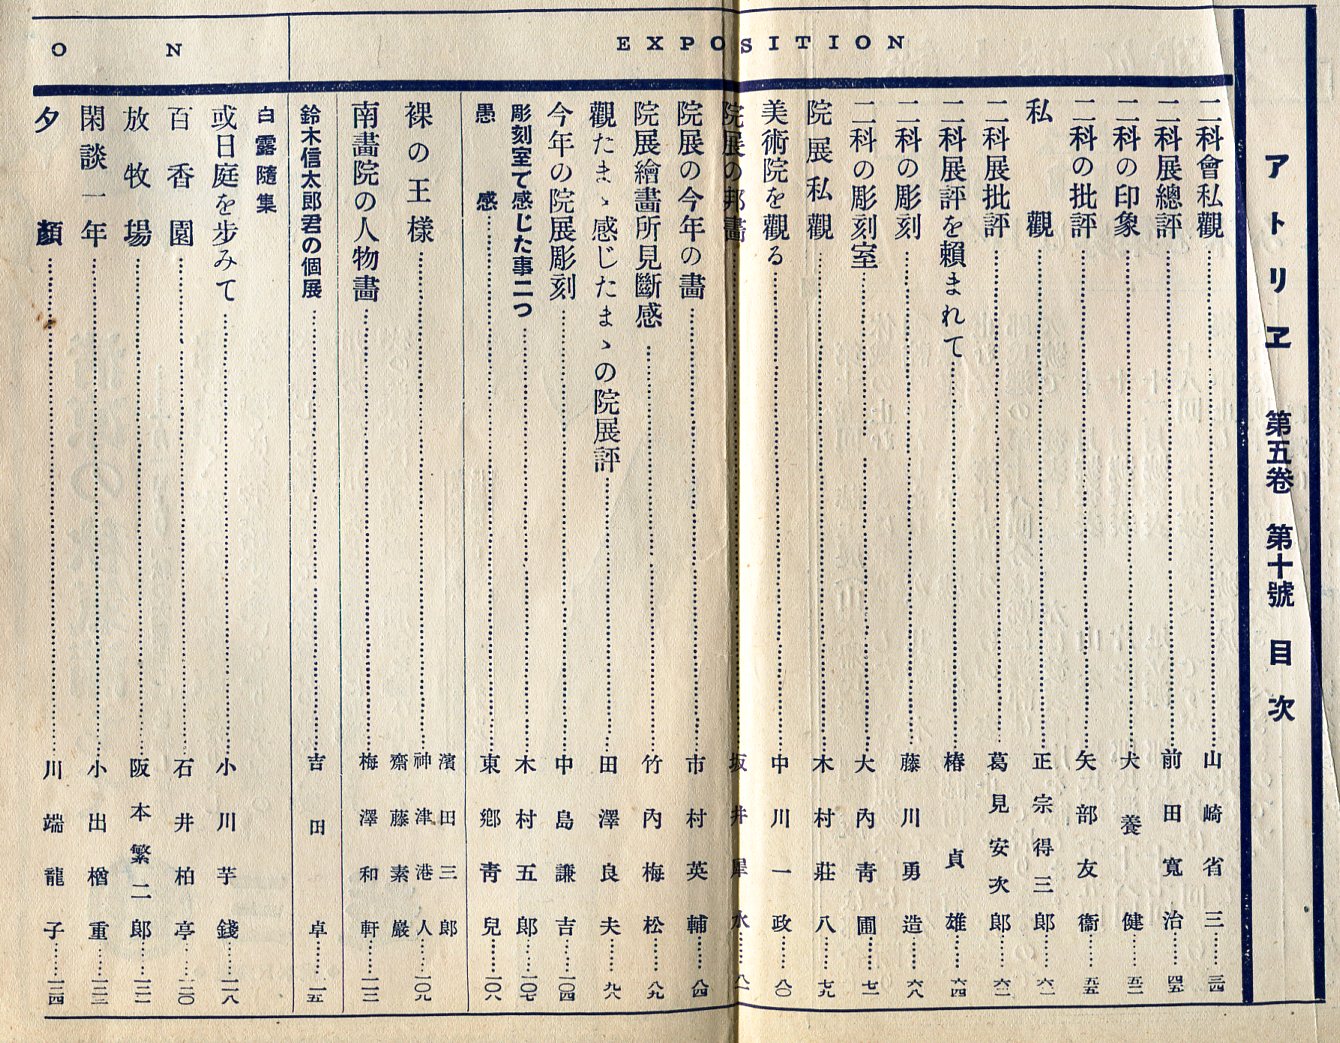 EXPOSITION
O N
アトリヱ 第五卷 第十號 目次
二科會私觀……山崎省三……三四
二科展總評……前田寬治……四五
二科の印象……犬養健……五二
二科の批評……矢部友衞……五五
私觀……正宗得三郎……六一
二科展批評……葛見安次郎……六二
二科展評を賴まれて……椿貞雄……六四
二科の彫刻……藤川勇造……六八
二科の彫刻室……大內靑圃……七一
院展私觀……木村莊八……七九
美術院を觀る……中川一政……八〇
院展の邦畵……坂井犀水……八一
院展の今年の畵……市村英輔……八四
院展繪畵所見斷感……竹內梅松……八九
觀たまゝ感じたまゝの院展評……田澤良夫……九八
今年の院展彫刻……中島謙吉……一〇四
彫刻室て感じた事二つ……木村五郎……一〇七
愚感……東鄕靑兒……一〇八
裸の王樣……濱田三郎 神津港人 齋藤素巖……一〇九
南畵院の人物畵……梅澤和軒……一一三
鈴木信太郎君の個展……吉田卓……一一五
白露隨集
或日庭を步みて……小川芋錢……一一八
百香園……石井柏亭……一二〇
放牧場……阪本繁二郎……一二二
閑談一年……小出楢重……一二三
夕顏……川端龍子……一二四